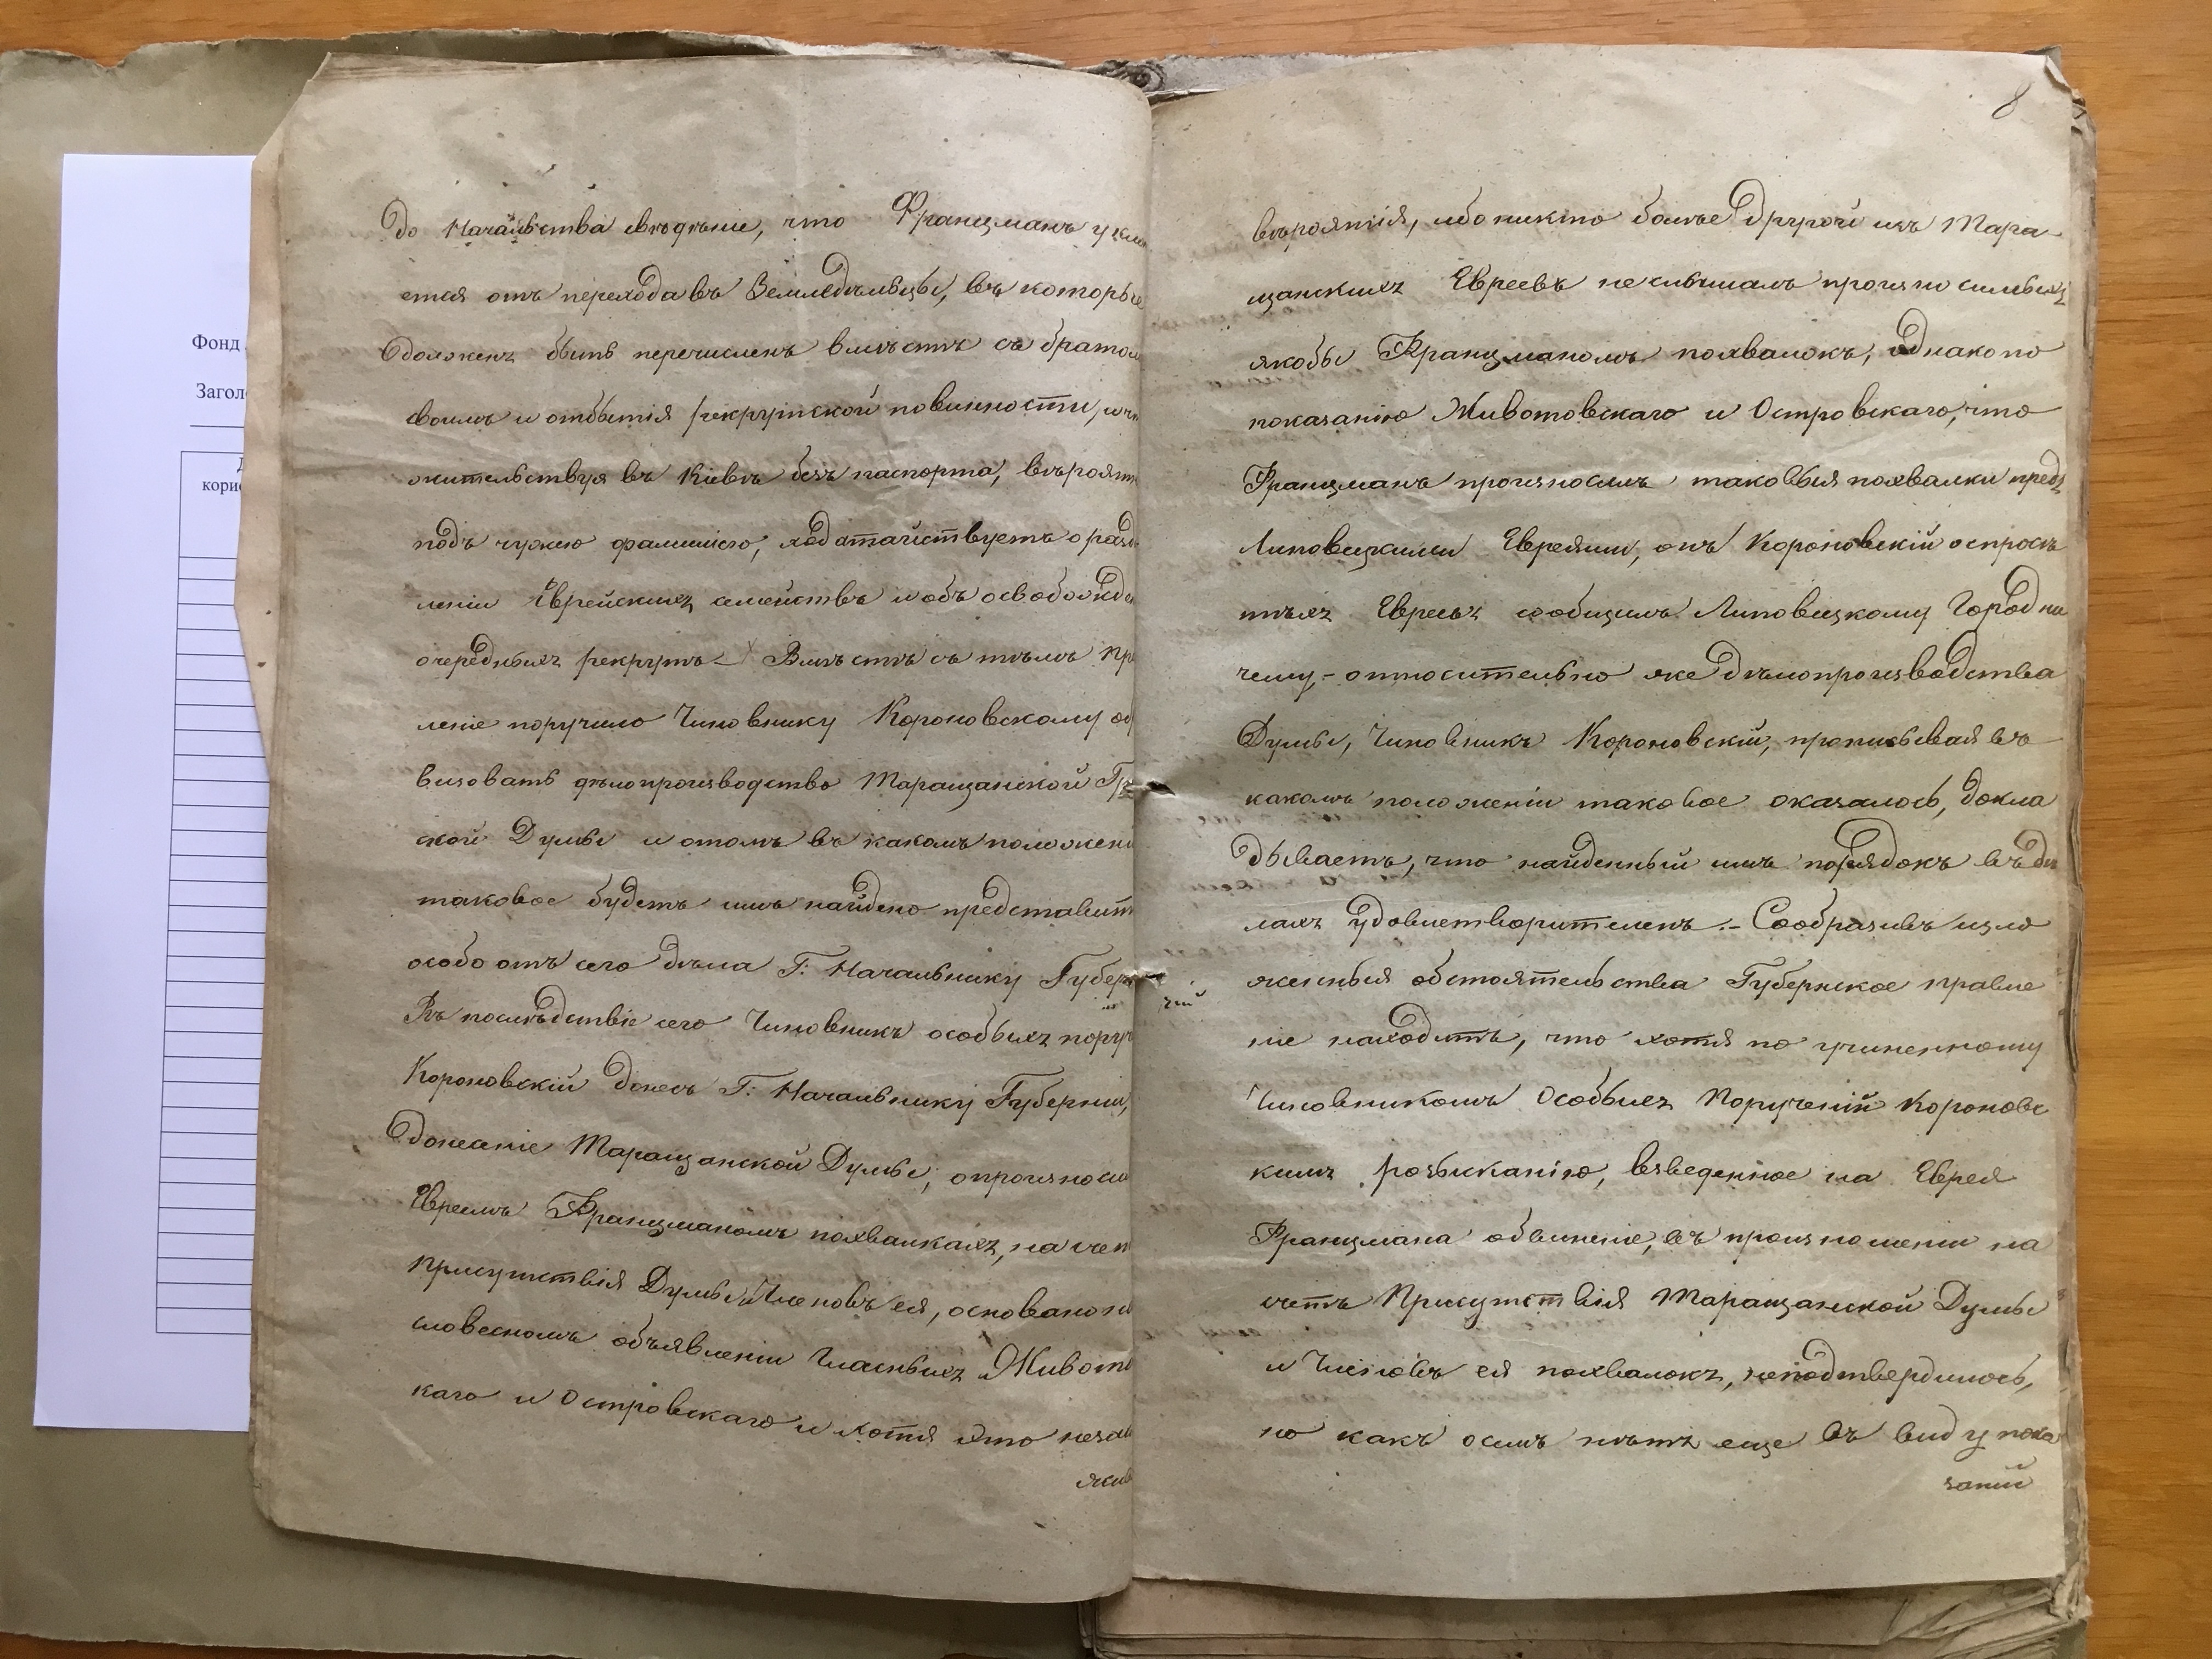 Фонд
Заголо
Д
корис
до Начальства свѣденіе, что Францманъ укло
ется отъ перехода въ Земледѣльцы, въ которые
долженъ быть перечисленъ вмѣстѣ съ братом
своимъ и отбытія рекрутской повинности, и что
жительствуя въ Кіевѣ безъ паспорта, вѣроятн
подъ чужею фамиліею, ходатайствуетъ о разд
леніи Еврейскихъ семействъ и объ освобожден
очередныхъ рекрутъ – Вмѣстѣ съ тѣмъ Пра
леніе поручило Чиновнику Короновскому об
визовать дѣлопроизводство Таращанской Гра
ской Думы и отомъ въ какомъ положени
таковое будетъ имъ найдено представить
особо отъ сего дѣла Г: Начальнику Губерн
Въ послѣдствіе сего Чиновникъ особыхъ поруч
ній
Короновскій донесъ Г: Начальнику Губерніи,
донесеніе Таращанской Думы, о произноси
Евреемъ Францманомъ похвалкахъ, на счет
Присутствія Думы и Членовъ ея, основано на
словесномъ объявленіи Гласныхъ Животов
каго и Островскаго и хотя это незас
жив
8
вѣроятія, ибо никто болѣе другой изъ Тара-
щанскихъ Евреевъ не слышалъ произносимыхъ
якобы Францманомъ похвалокъ, однако по
показанію Животовскаго и Островскаго, что
Францманъ произносилъ таковыя похвалки предъ
Липовецкими Евреями, онъ Короновскій о спросѣ
тѣхъ Евреевъ сообщилъ Липовецкому Городни
чему, – относительно же дѣлопроизводства
Думы, Чиновникъ Короновскій, прописывая въ
какомъ положеніи таковое оказалось, докла
дываетъ, что найденный имъ порядокъ въ дѣ
лахъ удовлетворителенъ. – Сообразивъ изло
женныя обстоятельства Губернское правле
ніе находитъ, что хотя по учиненному
Чиновникомъ Особыхъ Порученій Короновс
кимъ розысканію, взведенное на Еврея
Францмана обвиненіе, въ произношеніи на
счетъ Присутствія Таращанской Думы
и Членовъ ея похвалокъ, неподтвердилось,
но какъ о семъ нѣтъ еще въ виду пока
заній